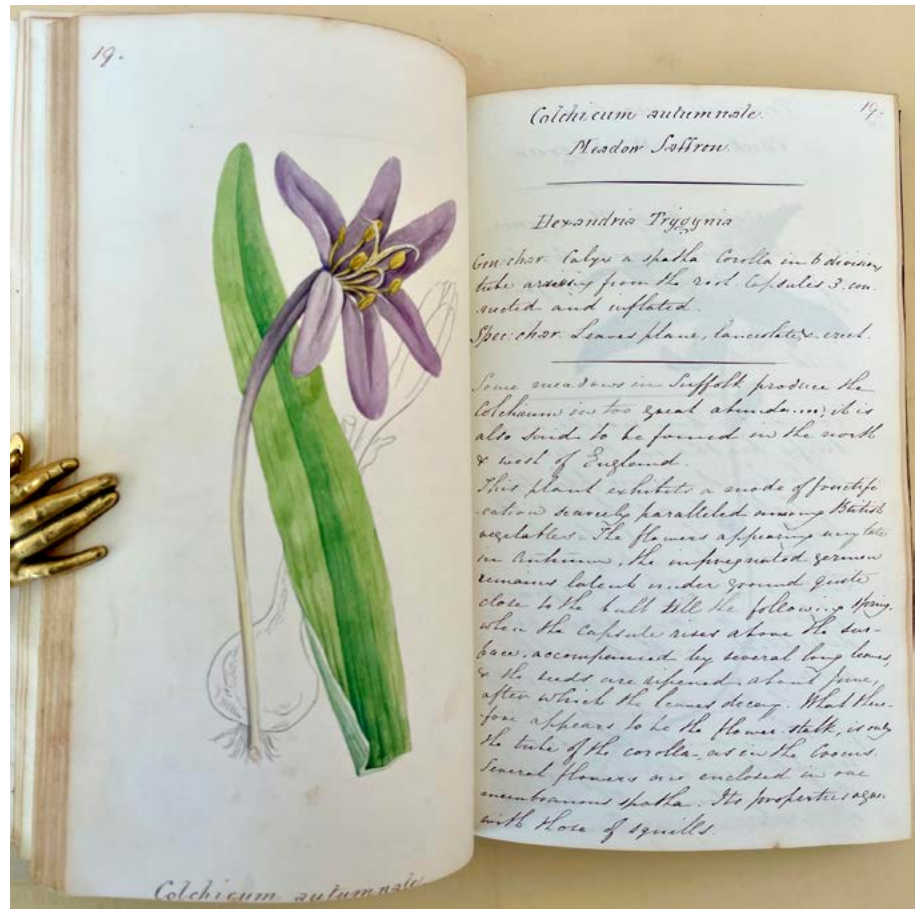 19.
Colchicum autumnale
Colchicum autumnale. 19.
Meadow Saffron.
Hexandria Trygynia
Gen: char: Calyx a spatha Corolla in 6 divisions
tube arising from the root. Capsules 3. con-
-nected and inflated.
Spec: char: Leaves plane, lanceolate & erect.
Some meadows in Suffolk produce the
Colchicum in too great abundance; it is
also said to be found in the north
& west of England.
This plant exhibits a mode of fructifi
-cation scarcely paralleled among British
vegetables. The flowers appearing very late
in Autumn, the impregnated germen
remains latent under ground quite
close to the bulb till the following spring,
when the capsule rises above the sur-
face, accompanied by several long leaves,
& the seeds are ripened about June,
after which the leaves decay. What there-
fore appears to be the flower-stalk, is only
the tube of the corolla, as in the Crocus.
Several flowers are enclosed in one
membranous spatha. Its properties agree
with those of squills.